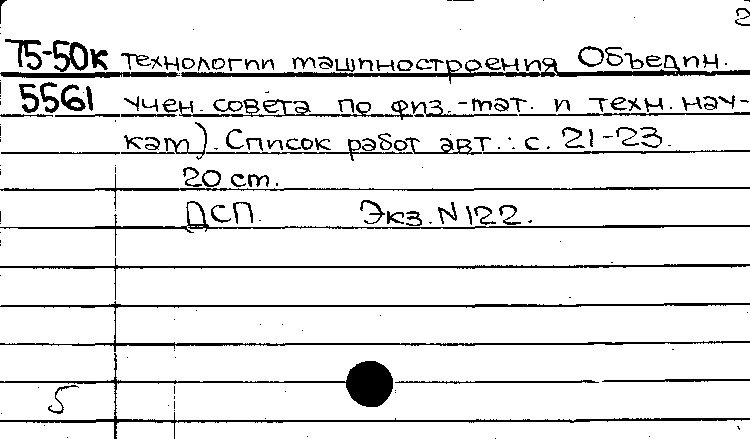 2
75-50к технологии машиностроения Объедин.
5561 учен. совета по физ.-мат. и техн. нау-
кам). Список работ авт.: с. 21-23.
20 см.
ДСП. Экз. N 122.
5